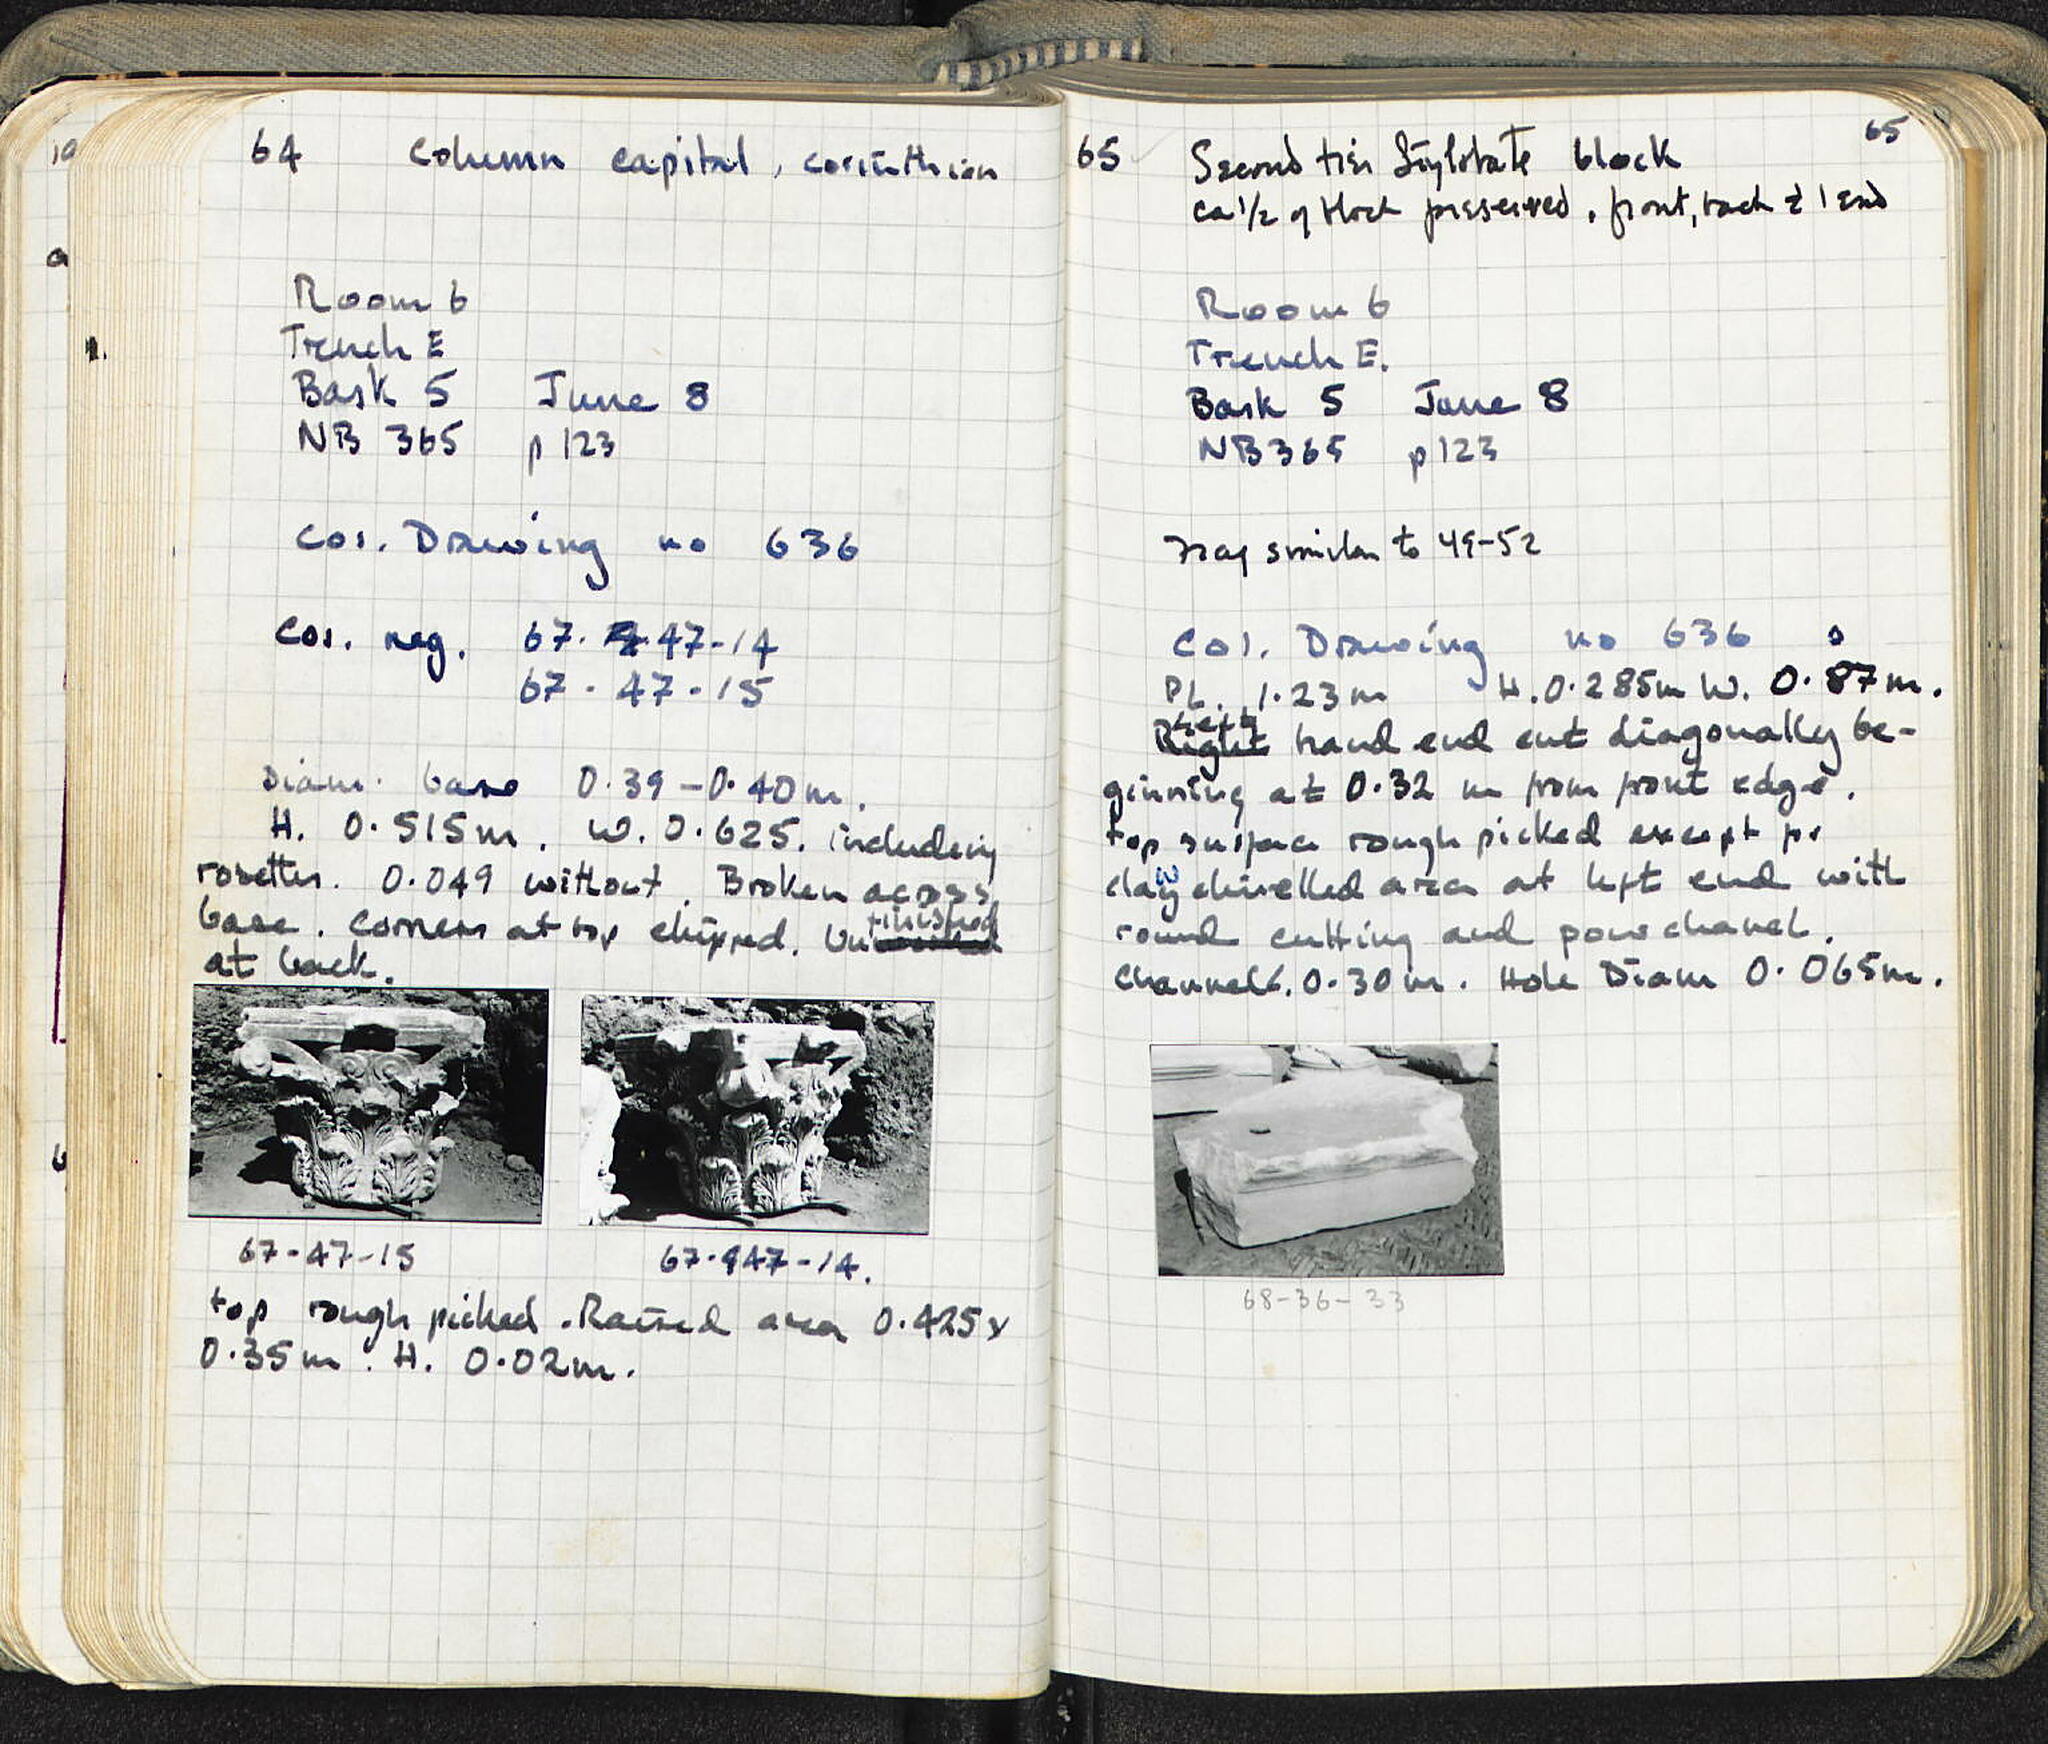 64 Column capital, corinthian
Room 6
Trench E
Bask 5 June 8
NB 365 p 123
Cor. Drawing no 636
Cor. neg. 67. 47-14
67 - 47 - 15
Diam. base 0.39 - 0.40m.
H. 0.515m. W. 0.625. including
rosettes. 0.049 without. Broken across
base. Corners at top chipped. Unfinished
at back.
67-47-15
67.947-14.
top rough picked. Raised area 0.425 x
0.35m. H. 0.02m.
65
65 Second tier Stylobate block
ca 1/2 of block preserved, front, back & 1 end
Room 6
Trench E.
Bask 5 June 8
NB 365 p 123
Frag similar to 49-52
Cor. Drawing no 636
PL. 1.23m H. 0.285m W. 0.87m.
Left
Right hand end cut diagonally be-
ginning at 0.32 m from front edge.
top surface rough picked except for
claw chiselled area at left end with
round cutting and pour channel.
Channel L. 0.30m. Hole Diam 0.065m.
68-36-33